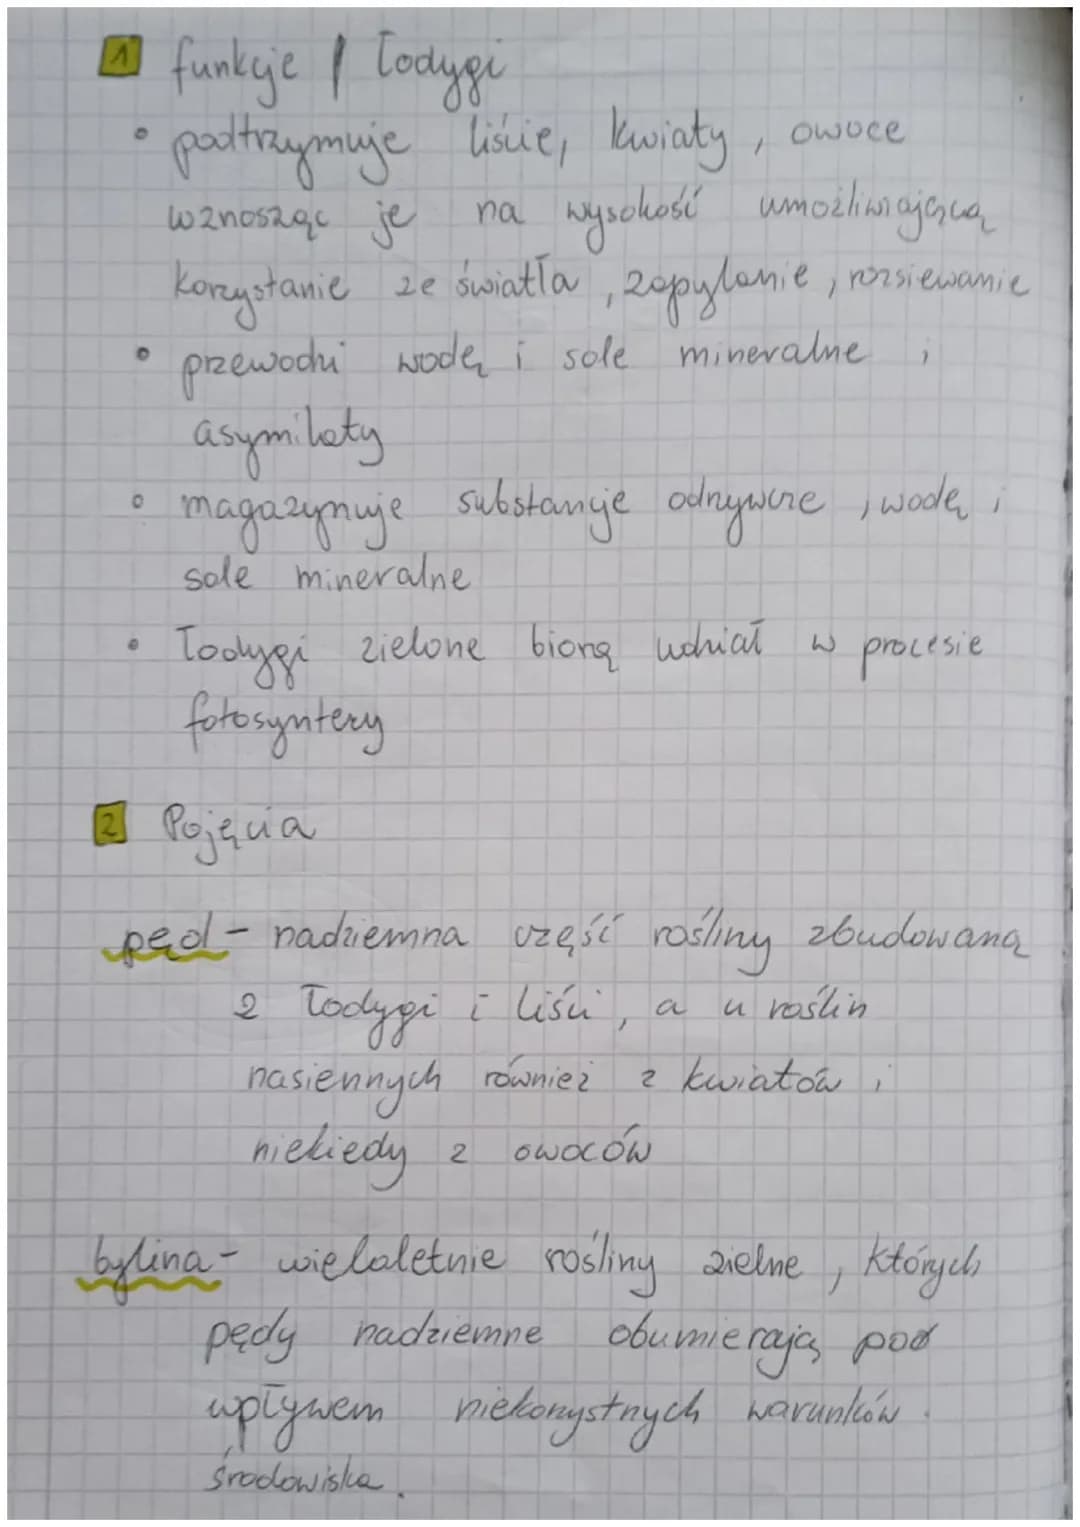 1 funkcje łodygi
• podtrzymuje liście, kwiaty, owoce
wznosząc je na wysokość umożliwiającą
korzystanie ze światła, zapylanie, rozsiewanie
• przewodzi wodę i sole mineralne i
asymilaty
• magazynuje substancje odżywcze, wodę i
sole mineralne
• łodygi zielone biorą udział w procesie
fotosyntezy
2 Pojęcia
pęd - nadziemna część rośliny zbudowaną
z łodygi i liści, a u roślin
nasiennych również z kwiatów i
niekiedy z owoców
bylina - wieloletnie rośliny zielne, których
pędy nadziemne obumierają pod
wpływem niekorzystnych warunków
środowiska.